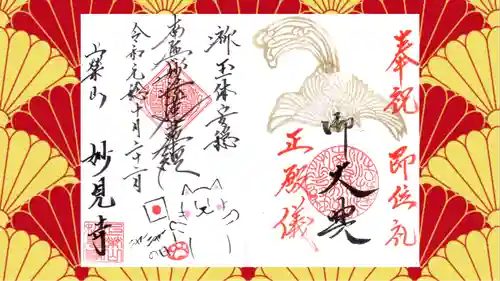 奉祝 即位礼
正殿儀
御大典
御玉体安穏
南無妙法蓮華経
令和元於十月二十二日
上栄山 妙見寺